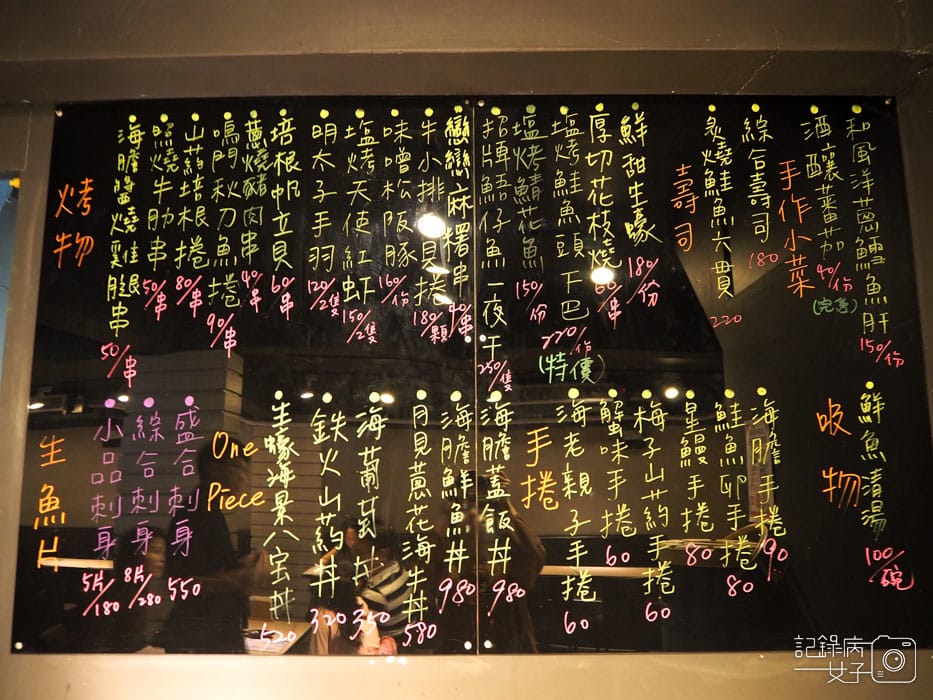 和風洋蔥鱈魚肝 150/份
酒釀蕃茄 40/份 (完售)
手作小菜
綜合壽司 180
炙燒鮭魚六貫 220
壽司
鮮甜生蠔 180/份
厚切花枝燒 60/串
塩烤鮭魚頭下巴 220/份 (特價)
塩烤鯖花魚 150/份
招牌鮚仔魚一夜干 250/隻
戀戀麻糬串 40/串
牛小排貝捲 180/顆
味噌松阪豚 160/份
塩烤天使紅蝦 150/2隻
明太子手羽 120/2隻
培根帆立貝 60/串
蔥燒豬肉串 40/串
鳴門秋刀魚捲 90/串
山葯培根捲 80/串
照燒牛肋串 50/串
海膽醬燒雞腿串 50/串
烤物
鮮魚清湯 100/碗
吸物
海膽手捲 90
鮭魚卵手捲 80
星鰻手捲 80
梅子山葯手捲 60
蟹味手捲 60
海老親子手捲 60
手捲
海膽蓋飯丼 980
海膽鮮魚丼 980
月見蔥花海牛丼 580
海葡萄丼 350
鉄火山葯丼 320
生蠔海景八宝丼 520
One Piece
盛合刺身 550
綜合刺身 8片/280
小品刺身 5片/180
生魚片
記錄病女子